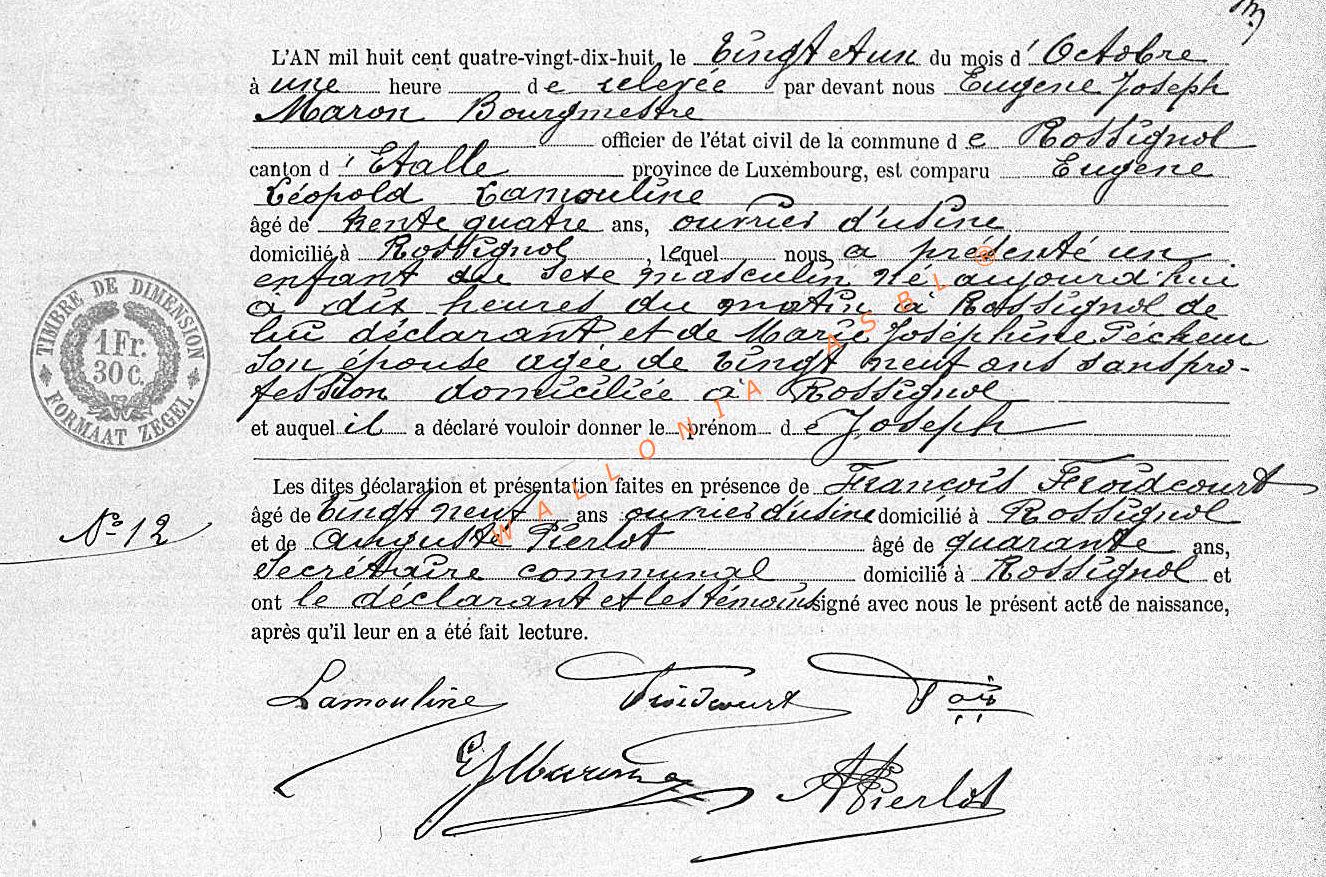 L'AN mil huit cent quatre-vingt-dix-huit, le Vingt et un du mois d' Octobre
à une heure de relevée par devant nous Eugène Joseph
Maron Bourgmestre
officier de l'état civil de la commune de Rossignol
canton d' Etalle province de Luxembourg, est comparu Eugène
Léopold Lamouline
âgé de trente quatre ans, ouvrier d'usine
domicilié à Rossignol, lequel nous a présenté un
enfant du sexe masculin né aujourd'hui
à dix heures du matin à Rossignol de
lui déclarant et de Marie Joséphine Pécheur
son épouse agée de vingt neuf ans sans pro-
fession domiciliée à Rossignol
TIMBRE DE DIMENSION
1 Fr.
30 C.
FORMAAT ZEGEL
et auquel il a déclaré vouloir donner le prénom de Joseph
Les dites déclaration et présentation faites en présence de François Froidcourt
âgé de vingt neuf ans ouvrier d'usine domicilié à Rossignol
N° 12
et de Auguste Pierlot âgé de quarante ans,
Secrétaire communal domicilié à Rossignol et
ont le déclarant et les témoins signé avec nous le présent acte de naissance,
après qu'il leur en a été fait lecture.
WALLONIA ASBL ®
Lamouline Froidcourt Fçois
EJMaron APierlot